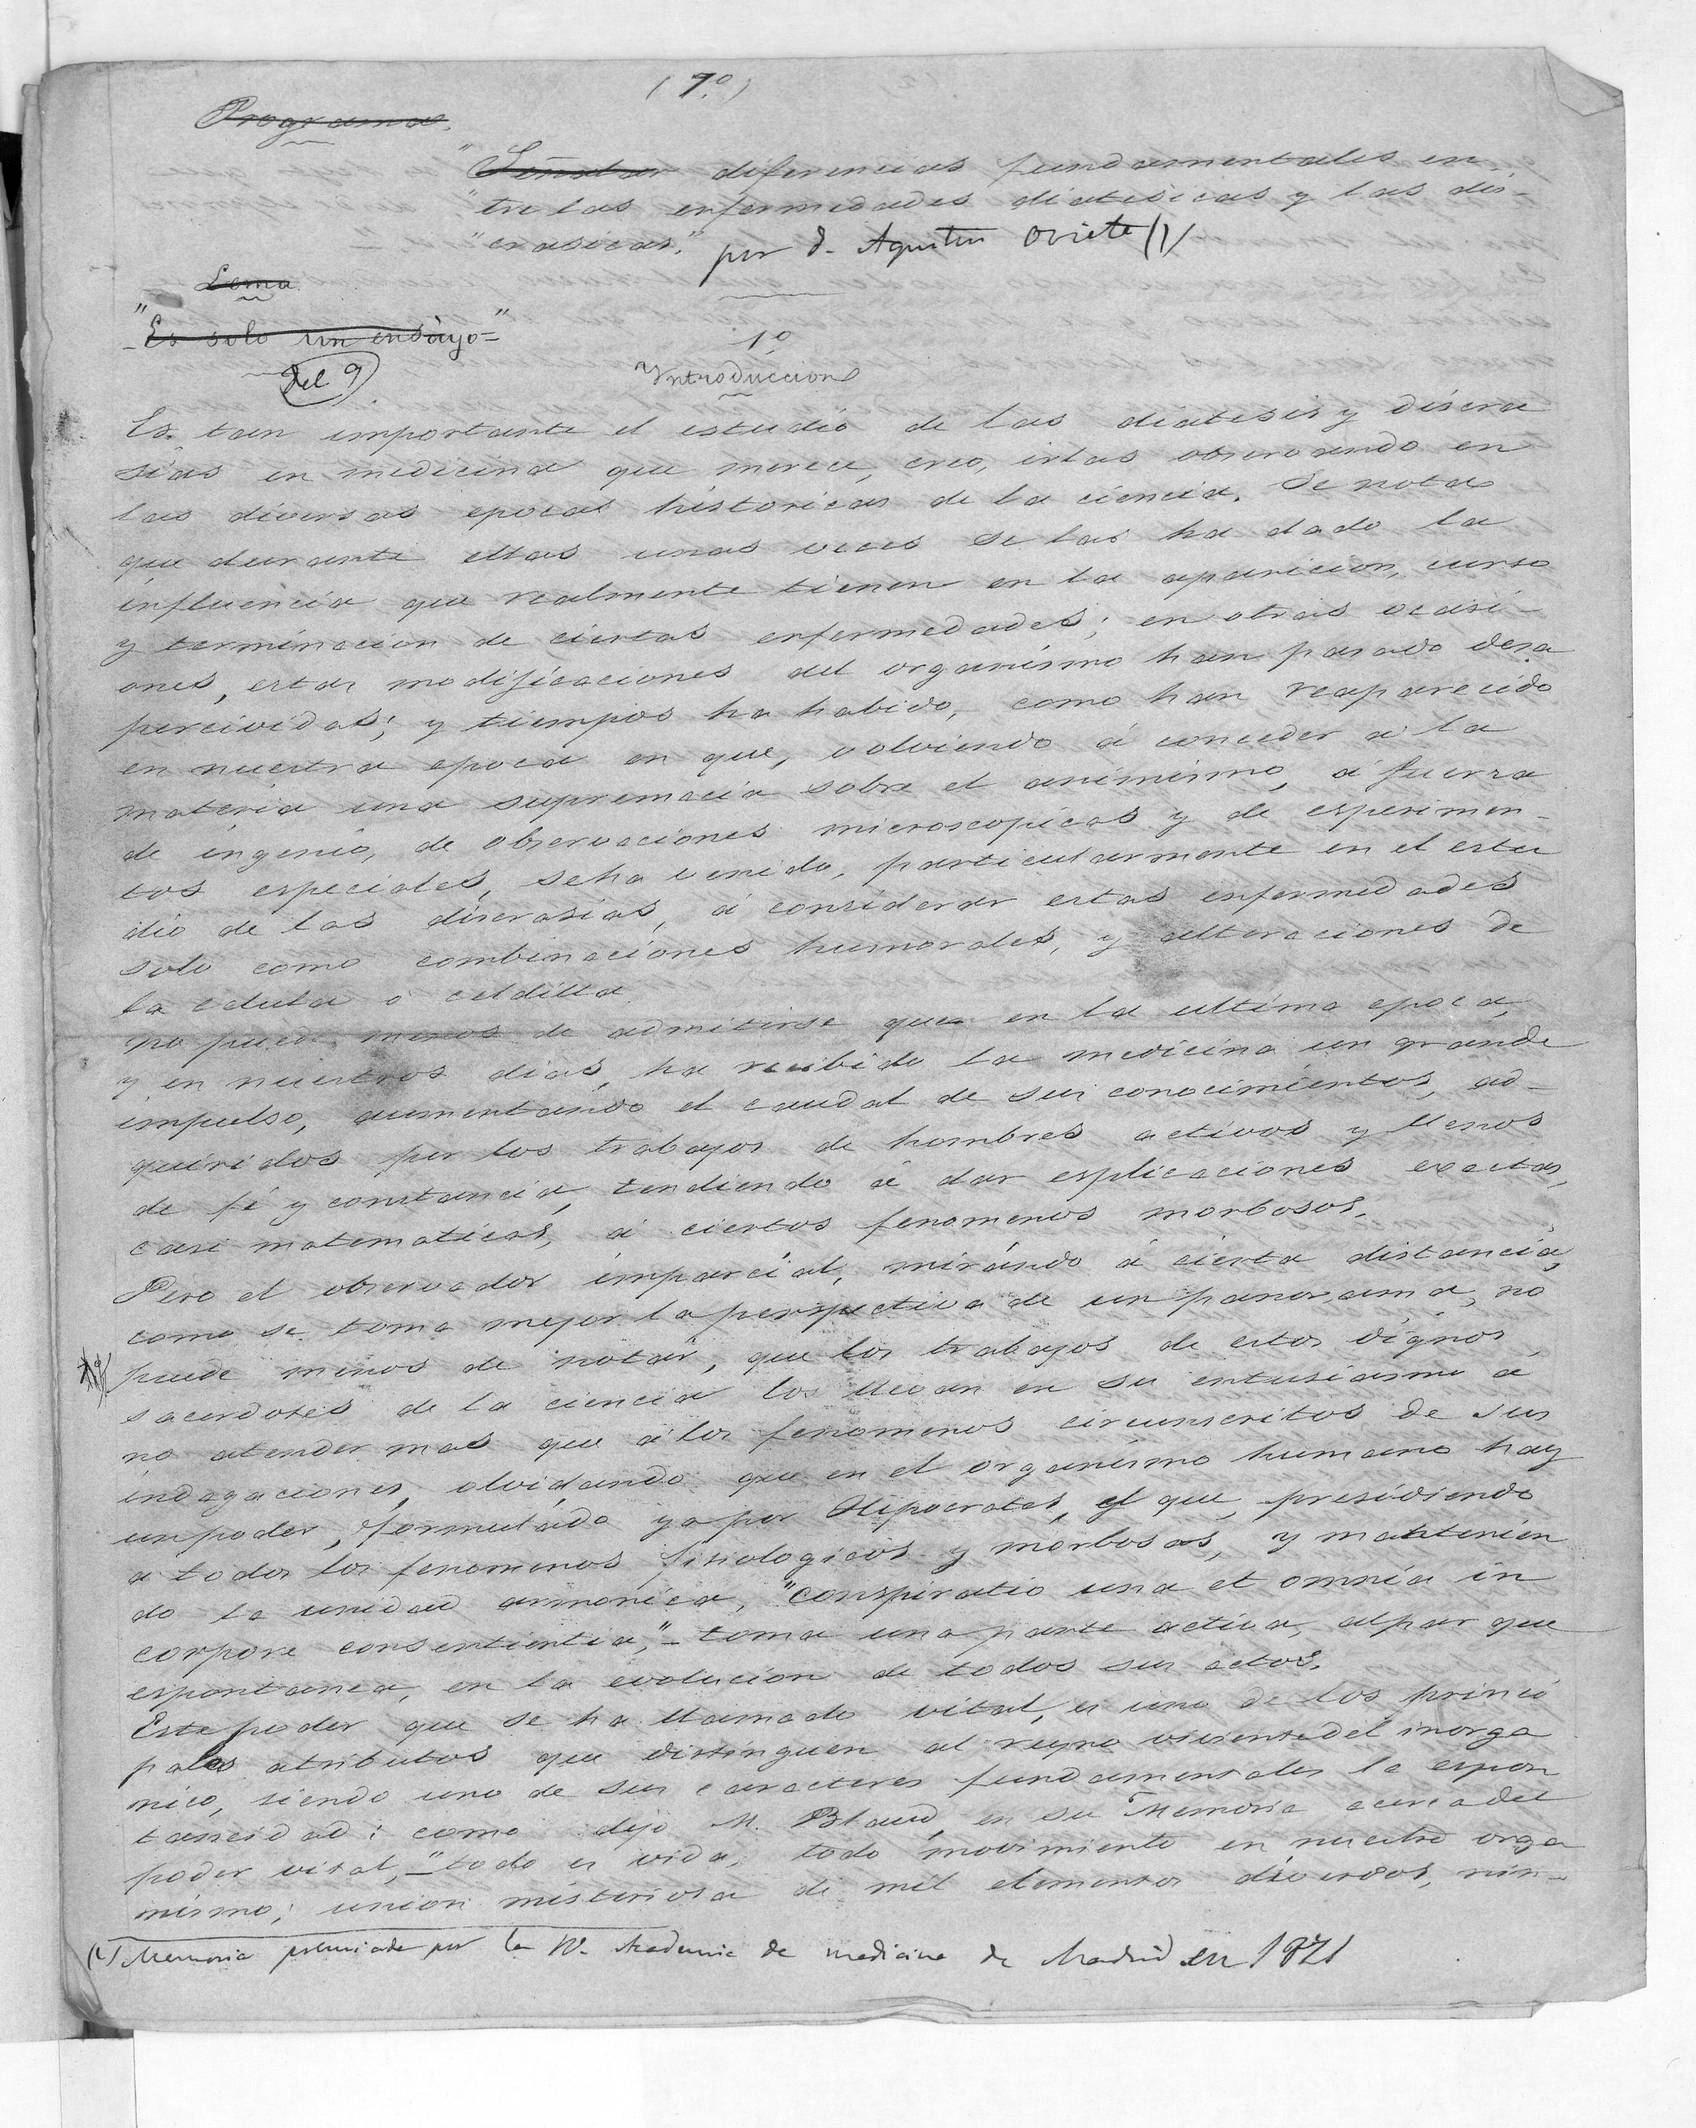 (1.º)
Programa.
"Señalar diferencias fundamentales en-
"tre las enfermedades diatesicas y las dis-
"crasicas". por D. Agustin Oviete (1)
Lema
"-Es solo un ensayo-"
del 9
1º
Yntroduccion
Es tan importante el estudio de las diatesis y discra
sias en medicina que merece, creo, irlas observando en
las diversas epocas historicas de la ciencia. Se nota
que durante ellas unas veces se las ha dado la
influencia que realmente tienen en la aparicion, curso
y terminacion de ciertas enfermedades; en otras ocasi-
ones, estas modificaciones del organismo han pasado desa
percividas; y tiempos ha habido, como han reaparecido
en nuestra epoca en que, volviendo á conceder a la
materia una supremacia sobre el animismo, á fuerza
de ingenio, de observaciones microscopicas y de esperimen-
tos especiales, se ha venido, particularmente en el estu
dio de las discrasias, á considerar estas enfermedades
solo como combinaciones humorales, y alteraciones de
la celula o celdilla
no puede menos de admitirse que en la ultima epoca,
y en nuestros dias, ha recibido la medicina un grande
impulso, aumentando el caudal de sus conocimientos, ad-
quiridos por los trabajos de hombres activos y llenos
de fé y constancia, tendiendo á dar esplicaciones exactas,
casi matematicas, á ciertos fenomenos morbosos.
Pero el observador imparcial, mirando á cierta distancia,
como se toma mejor la perspectiva de un panorama, no
puede menos de notar, que los trabajos de estos dignos
sacerdotes de la ciencia los llevan en su entusiasmo á
no atender mas que á los fenomenos circunscritos de sus
indagaciones, olvidando que en el organismo humano hay
un poder, formulado ya por Hipocrates, el que, presidiendo
a todos los fenomenos fisiologicos y morbosos, y mantenien
do la unidad armonica, "conspiratio una et omnia in
corpore consentientia,"- toma una parte activa, al par que
espontanea, en la evolucion de todos sus actos.
Este poder que se ha llamado vital, es uno de los princi
pales atributos que distinguen al reyno viviente del inorga
nico, siendo uno de sus caracteres fundamentales la espon
taneidad: como dijo M. Blaud, en su Memoria acerca del
poder vital,-"todo es vida, todo movimiento en nuestro orga
nismo; union misteriosa de mil elementos diversos, nin-
(1) Memoria premiada por la Rl. Academia de medicina de Madrid en 1871